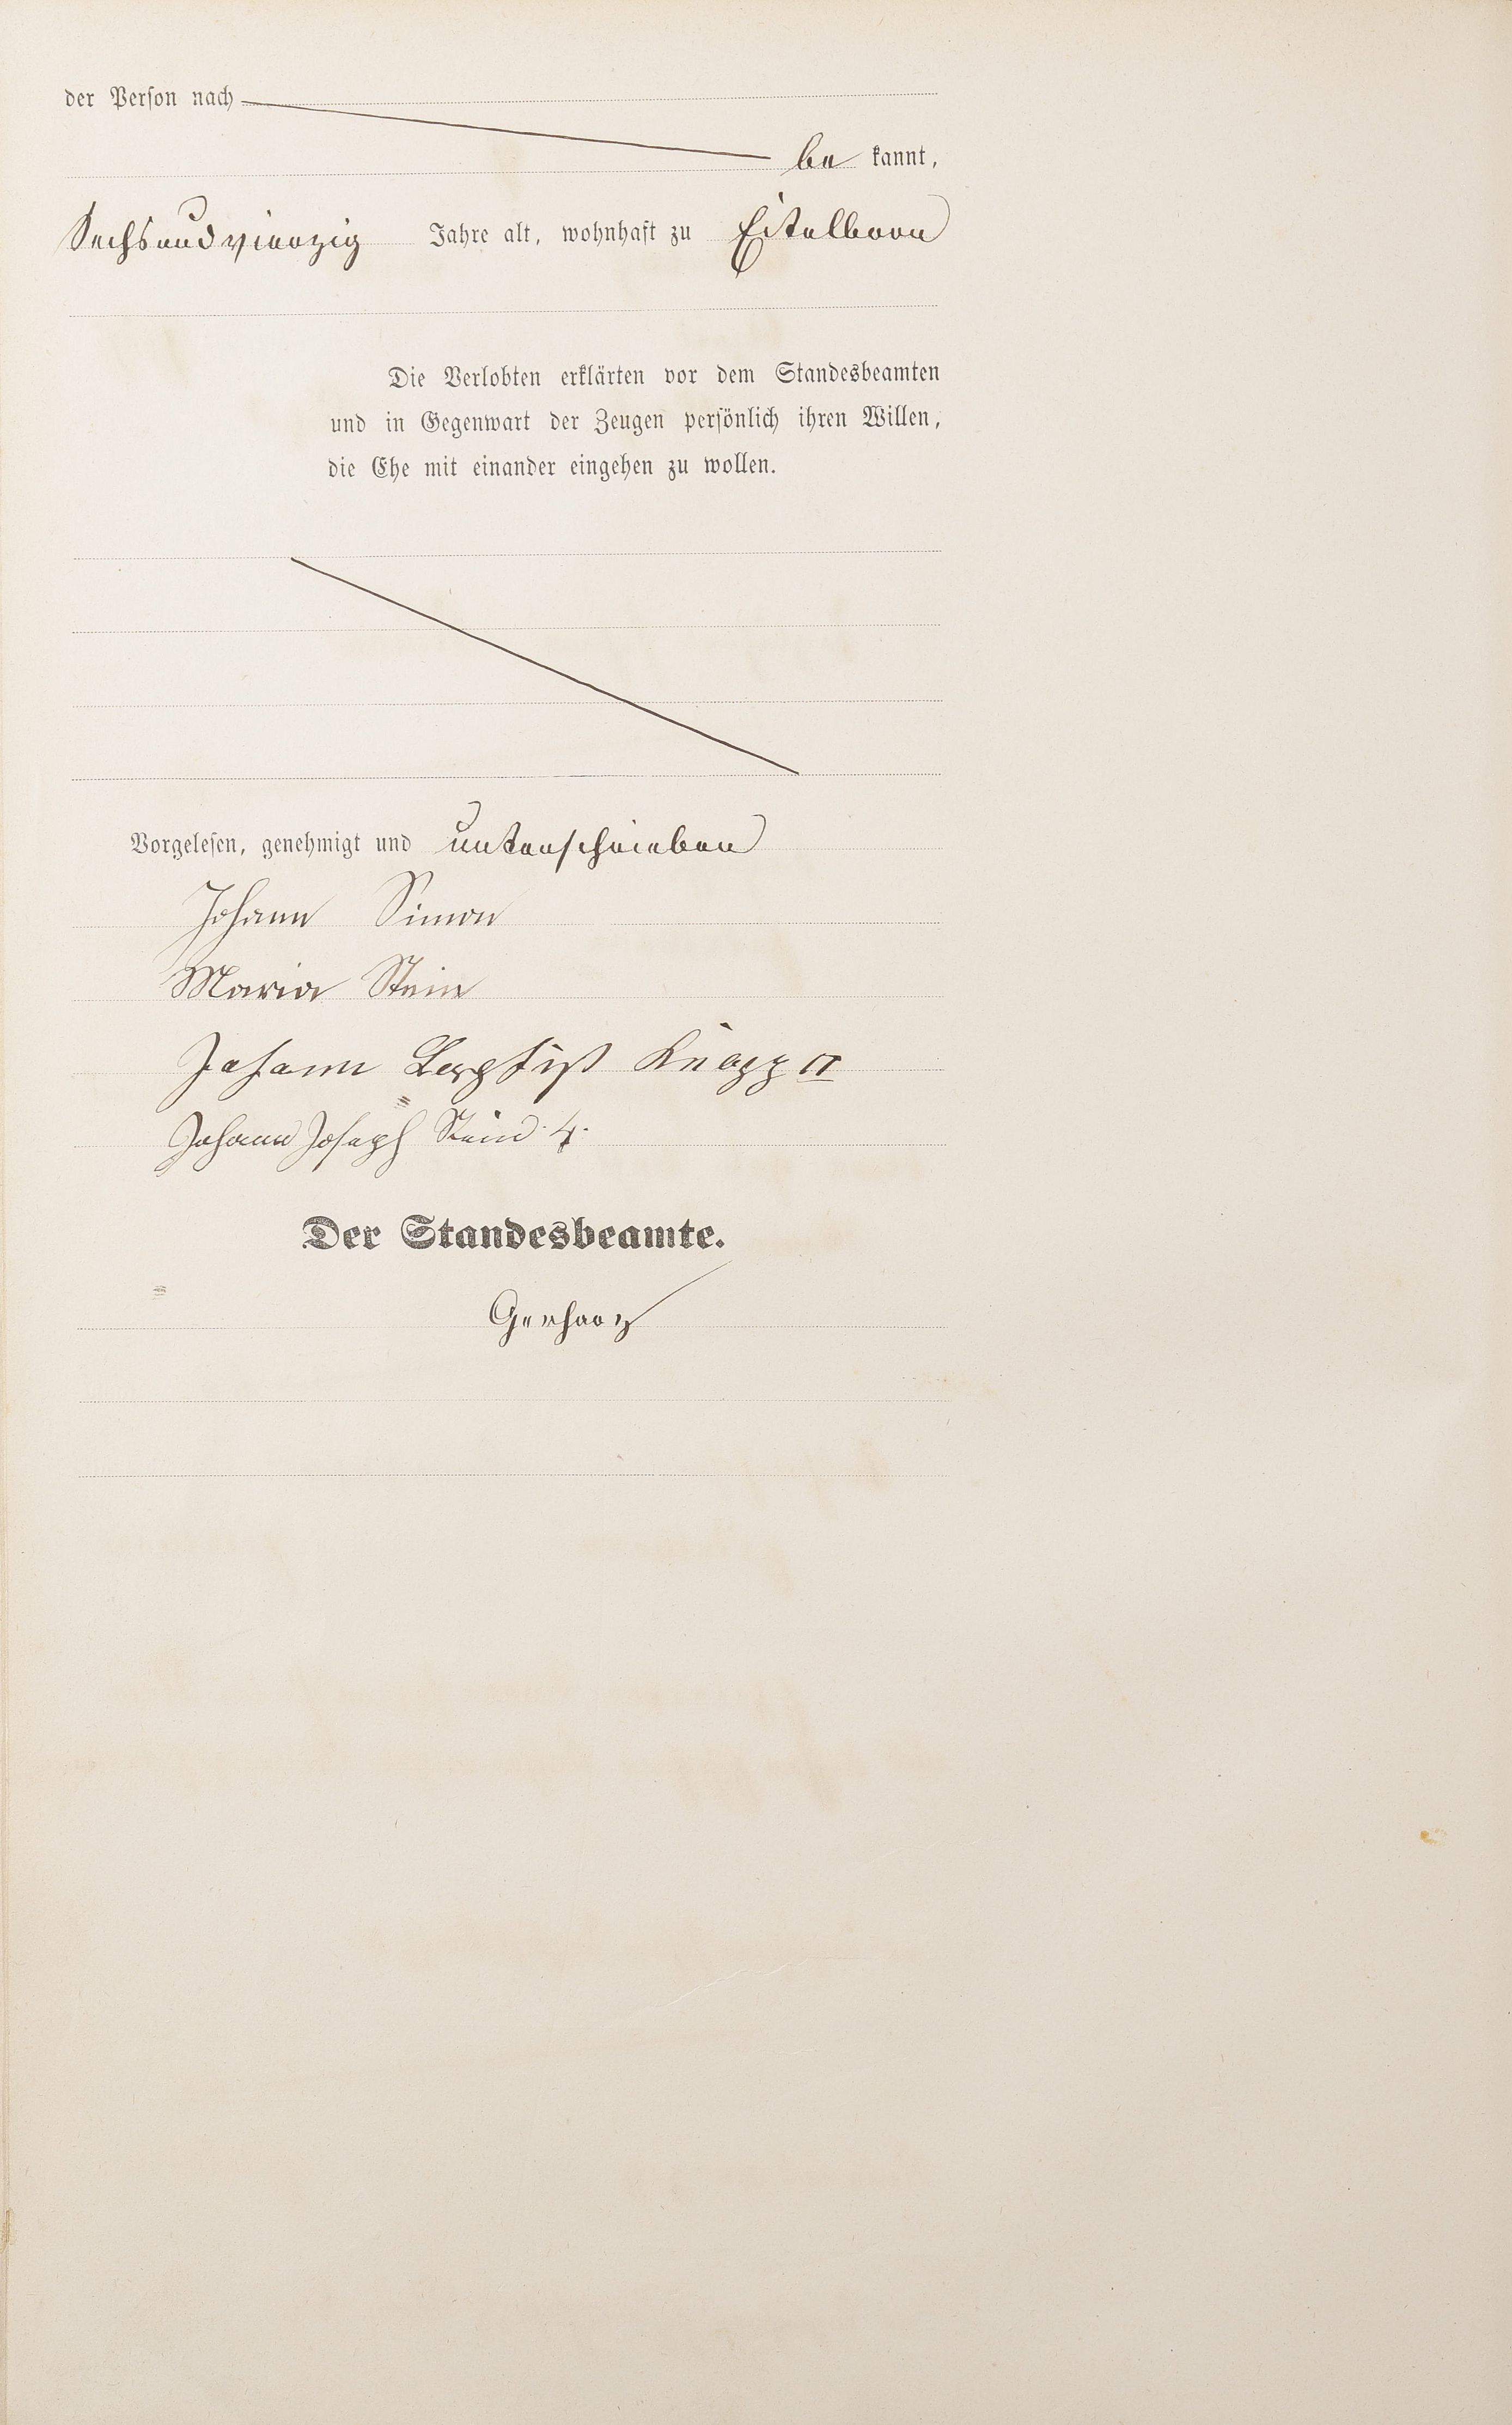 der Person nach
be kannt,
Sechsundvierzig Jahre alt, wohnhaft zu Eitelborn
Die Verlobten erklärten vor dem Standesbeamten
und in Gegenwart der Zeugen persönlich ihren Willen,
die Ehe mit einander eingehen zu wollen.
Vorgelesen, genehmigt und unterschrieben
Johann Simon
Maria Stein
Johann Baptist Knapp II
Johann Joseph Stein 4.
Der Standesbeamte.
Gerharz